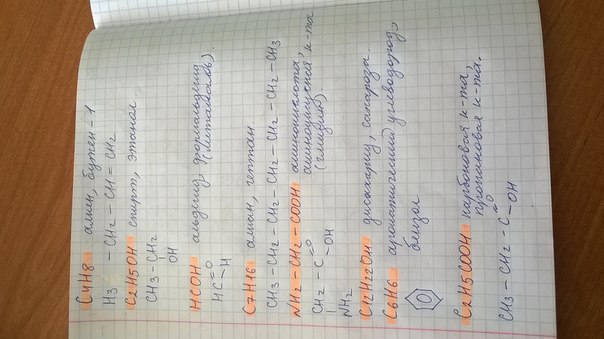 C4H8 алкен, бутен-1
H3 - CH2 - CH = CH2
C2H5OH спирт, этанол
CH3-CH2
OH
HCOH альдегид, формальдегид
(метаналь).
HC=O
H
C7H16 алкан, гептан.
CH3-CH2-CH2-CH2-CH2-CH2-CH3
NH2-CH2-COOH аминокислота,
аминоуксусная к-та
(глицин).
CH2-C=O
OH
NH2
C12H22O11 дисахарид, сахароза.
C6H6 ароматический углеводород,
бензол
C2H5COOH карбоновая к-та,
пропановая к-та.
CH3-CH2-C=O
OH